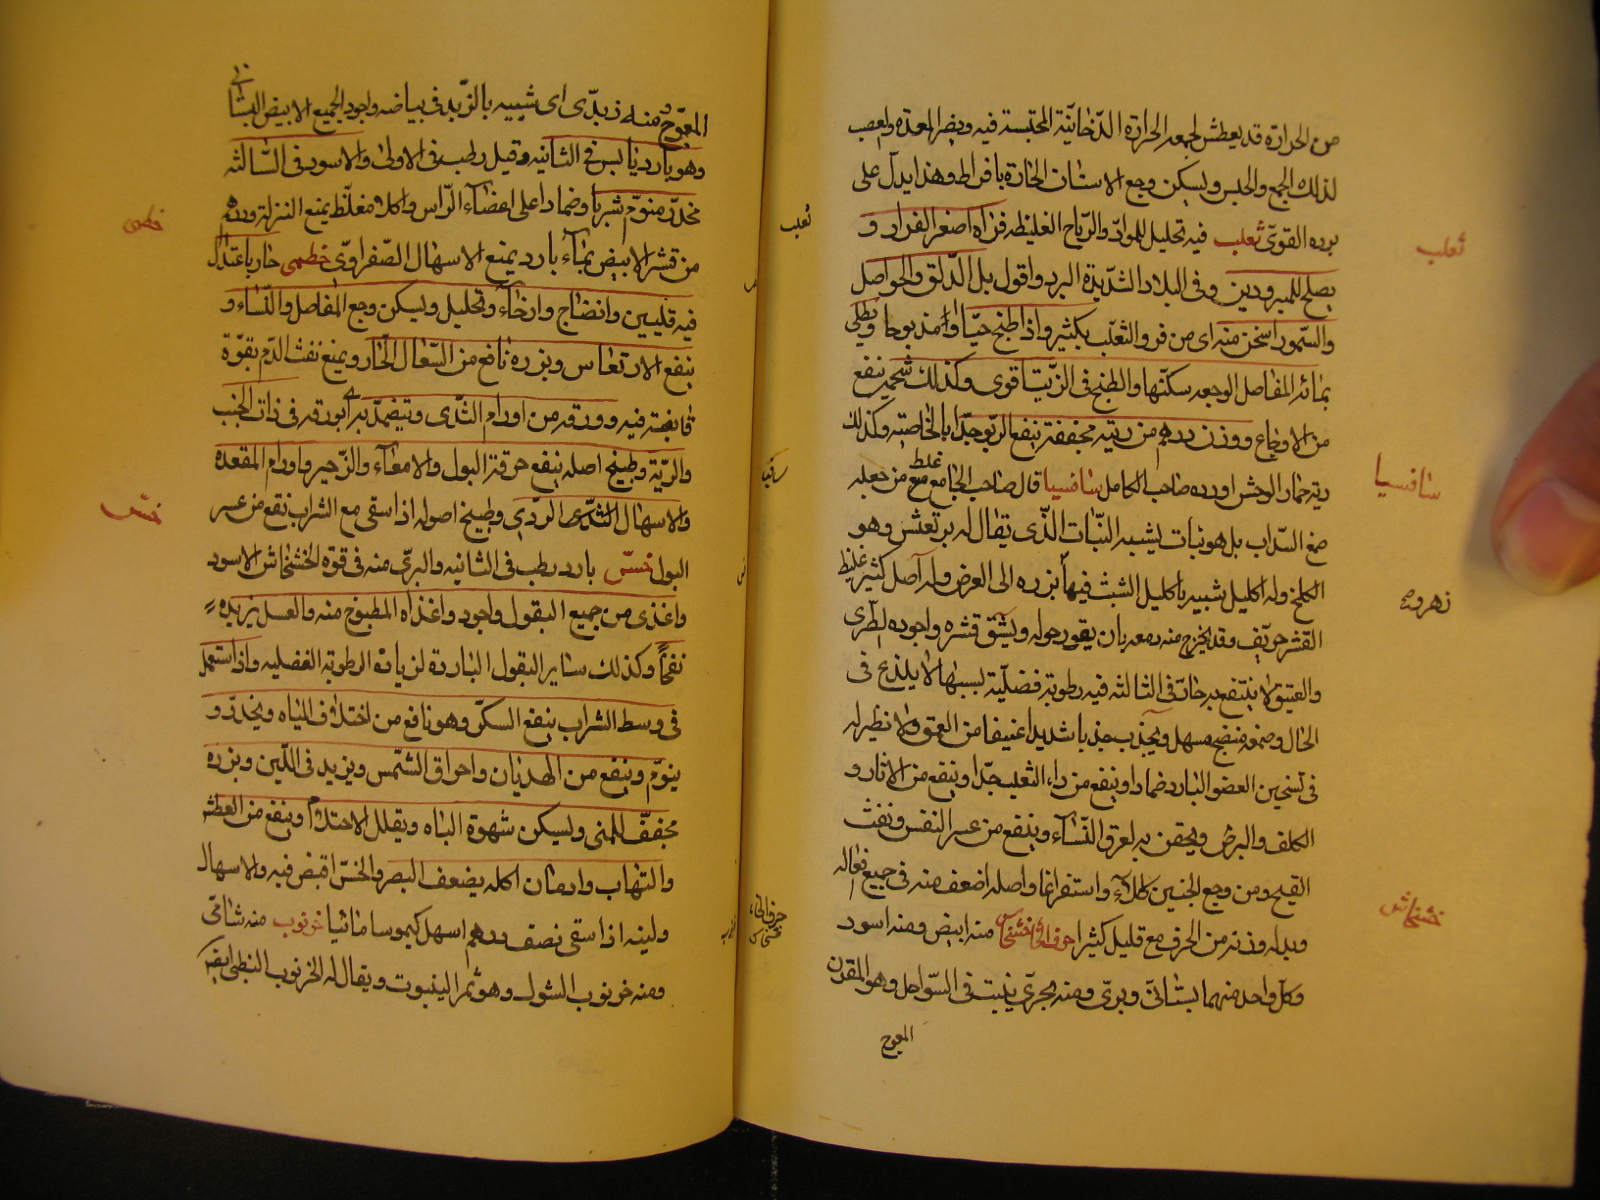 من الحرارة قد يعطش لجمعه الحرارة الدّخانيّة المحتبسة فيه ويضر المعدة والعصب
لذلك الجمع والحبس ويسكن وجع الاسنان الحارة بافراط وهذا يدلّ على
برده القوىّ ثعلب فيه تحليل للموادّ والرّياح الغليظة فراه اصغر الفراء و
ثعلب
يصلح للمبرودين وفى البلاد الشديدة البرد واقول بل الدّلق والحواصل
والسّمور اسخن منه اى من فرو الثعلب بكثير واذا طبخ حيّا او مذبوحا ويطلى
بمائه المفاصل الوجعه سكّنها والطبخ فى الزّيت اقوى وكذلك شحمه ينفع
من الاوجاع ووزن درهم من ريته مجففة ينفع الربو جدّا بالخاصيّة وكذلك
رية حمار الوحش اورده صاحب الكامل ثافسيا قال صاحب الجامع غلط من جعله
ثافسيا
صمغ السّداب بل هو نبات يشبه النّبات الذّى يقال له وهو
الكلخ وله اكليل شبيه باكليل الشبث فيها بزره الى العرض وله اصل كثير غليظ
القشر حرّيف وقد يخرج منه دمعه بان يقور حوله ويشق قشره واجوده الطّرى
والعتيق لا ينتفع به حارّ فى الثالثه فيه رطوبة فضليّة بسببها لا يلذع فى
الحال وصمغه منضج مسهل ويجذب جذبا شديدا عنيفا من العمق ولا نظير له
فى تسخين العضو البارد ضمادا وينفع من داء الثعلب جدّا وينفع من الاثار و
الكلف والبرص ويحقن به لعرق النّساء وينفع من عسر النفس ونفث
القيح ومن وجع الجنبين واصله اضعف منه فى جميع افعاله
وبدله وزنه من الحرف مع قليل كثيرا خشخاش منه ابيض ومنه اسود
خشخاش
وكل واحد منهما بستانىّ وبرىّ ومنه بحرىّ ينبت فى السّواحل وهو المقرن
المعوج
المعوّج منه زبدّى اى شبيه بالزّبد فى بياضه واجود الجميع الابيض البستانى
وهو بارد يابس فى الثانيه وقيل رطب فى الاولى والاسود فى الثالثه
مخدّر منوّم شربا وضمادا على اعضاء الرّاس واكلا مغلّظ يمنع النزلة ودرهم
من قشر الابيض بماء بارد يمنع الاسهال الصّفراوىّ خطمى حار باعتدال
خطمى
فيه تليين وانضاج وارخاء وتحليل ويسكن وجع المفاصل والنّساء و
ينفع الارتعاش وبزره نافع من السّعال الحّار ويمنع نفث الدّم بقوّة
قابضة فيه وورقه من اورام الثدى ويتضمّد به بورقه فى ذات الجنب
والريّة وطبيخ اصله ينفع حرقة البول والامعاء والزّحير واورام المقعدة
والاسهال الردى وطبيخ اصوله اذا سقى مع الشراب نفع من عسر
البول خسّ بارد رطب فى الثانيه والبرىّ منه فى قوة الخشخاش الاسود
خسّ
واغذى من جميع البقول واجود واغذاه المطبوخ منه والغسل يزيده
نفخًا وكذلك سائر البقول الباردة لزيادة الرطوبة الفضليه واذا استعمل
فى وسط الشراب ينفع السكر وهو نافع من اختلاف المياه ويخدّر و
ينوّم وينفع من الهذيان واحراق الشّمس ويزيد فى اللّبن وبزره
مجففّ للمنى ويسكن شهوة الباه ويقلل الاحتلام وينفع من العطش
والتهاب وادمان اكله يضعف البصر والخسّ قبض فيه ولا اسهال
ولبنه اذا سقى نصف درهم اسهل كيموسا مائيا خرنوب منه شامىّ
ومنه خرنوب الشوك وهو ثمر الينبوت ويقال له الخرنوب النبطى